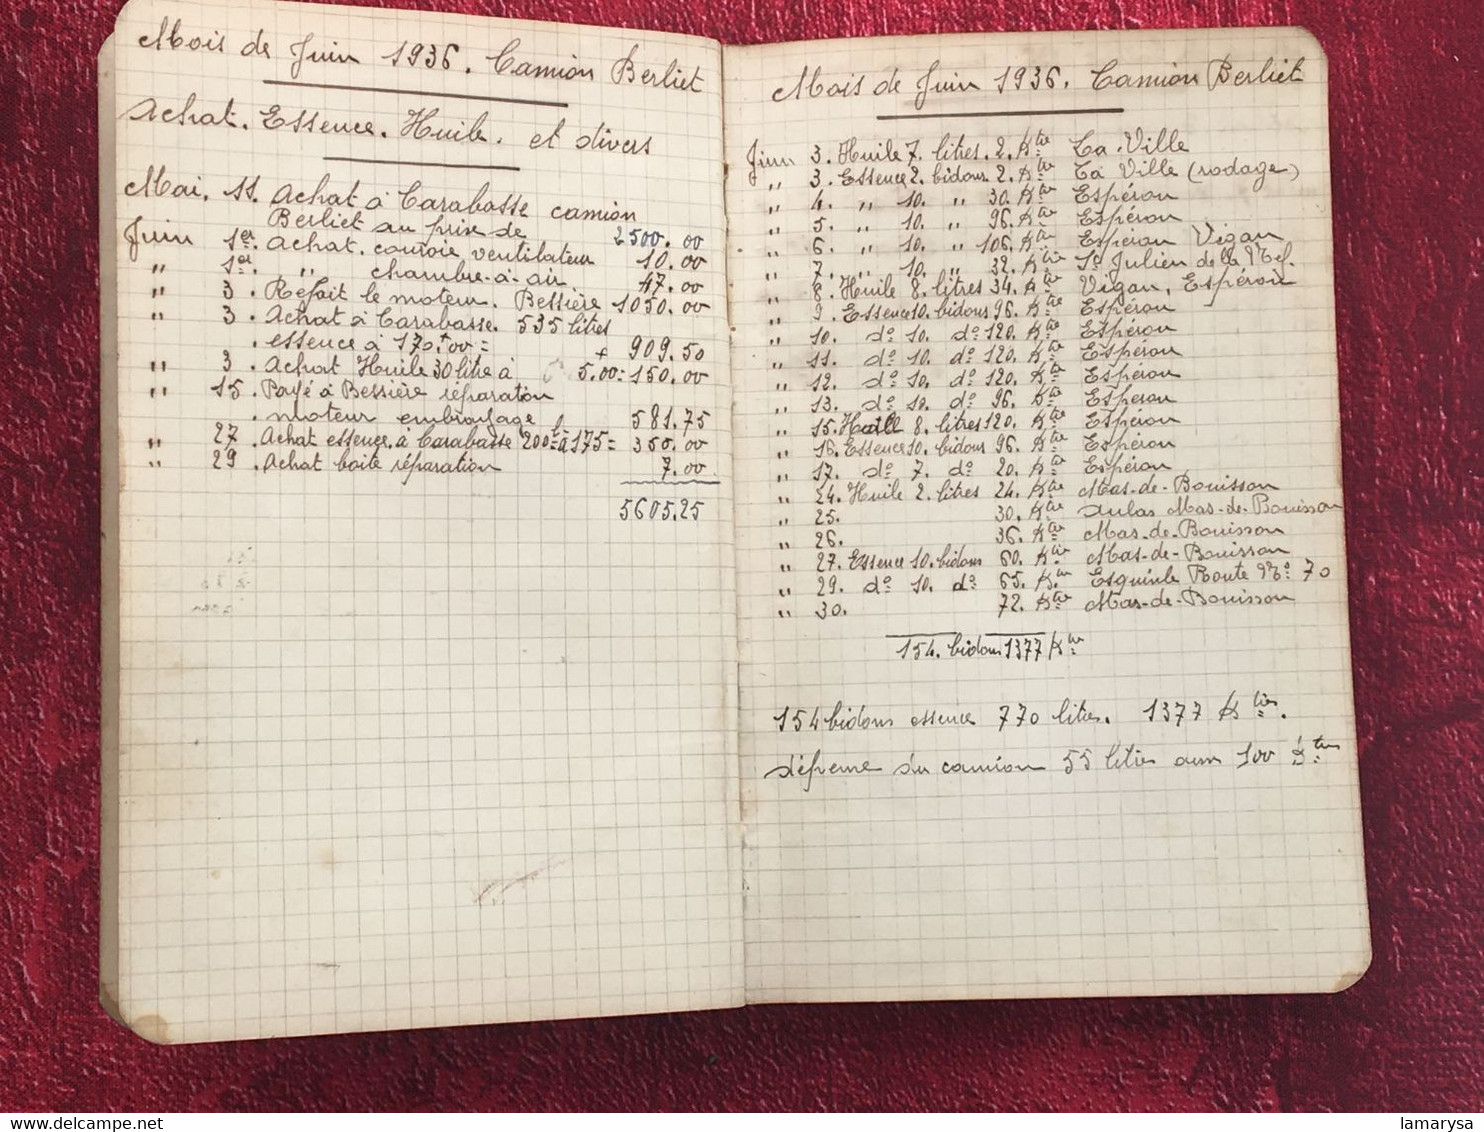 Mois de Juin 1936. Camion Berliet
Achat. Essence. Huile. et divers
Mai. 11. Achat à Carabasse camion
Berliet au prix de 2500.00
Juin 1er. Achat. couroie ventilateur 10.00
" 1er. " chambre-à-air 47.00
" 3. Refait le moteur. Bessière 1050.00
" 3. Achat à Carabasse. 535 litres
. essence à 170.00 = + 909.50
" 3. Achat Huile 30 litre à 5.00 = 150.00
" 15. Payé à Bessière réparation
. moteur embrayage 581.75
" 27. Achat essence. à Carabasse 200 l à 175 = 350.00
" 29. Achat boite réparation 7.00
5605.25
Mois de Juin 1936. Camion Berliet
Juin 3. Huile 7. litres. 2. Ktre La Ville
" 3. Essence 2. bidons 2. Ktre La Ville (rodage)
" 4. " 10. " 30. Ktre Espérou
" 5. " 10. " 96. Ktre Espérou
" 6. " 10. " 106. Ktre Espérou Vigan
" 7. " 10. " 32. Ktre St Julien de la Nef.
" 8. Huile 8. litres 34. Ktre Vigan. Espérou
" 9. Essence 10. bidons 96. Ktre Espérou
" 10. do 10. do 120. Ktre Espérou
" 11. do 10. do 120. Ktre Espérou
" 12. do 10. do 120. Ktre Espérou
" 13. do 10. do 96. Ktre Espérou
" 15. Huile 8. litres 120. Ktre Espérou
" 16. Essence 10. bidons 96. Ktre Espérou
" 17. do 7. do 20. Ktre Espérou
" 24. Huile 2. litres 24. Ktre Mas-de-Bouisson
" 25. 30. Ktre Aulas Mas-de-Bouisson
" 26. 36. Ktre Mas-de-Bouisson
" 27. Essence 10. bidons 60. Ktre Mas-de-Bouisson
" 29. do 10. do 65. Ktre Esquirle Route No 70
" 30. 72. Ktre Mas-de-Bouisson
154. bidons 1377 Ktre
154 bidons essence 770 litres. 1377 Ktres.
dépense du camion 55 litres aux 100 Ktres
lamarysa